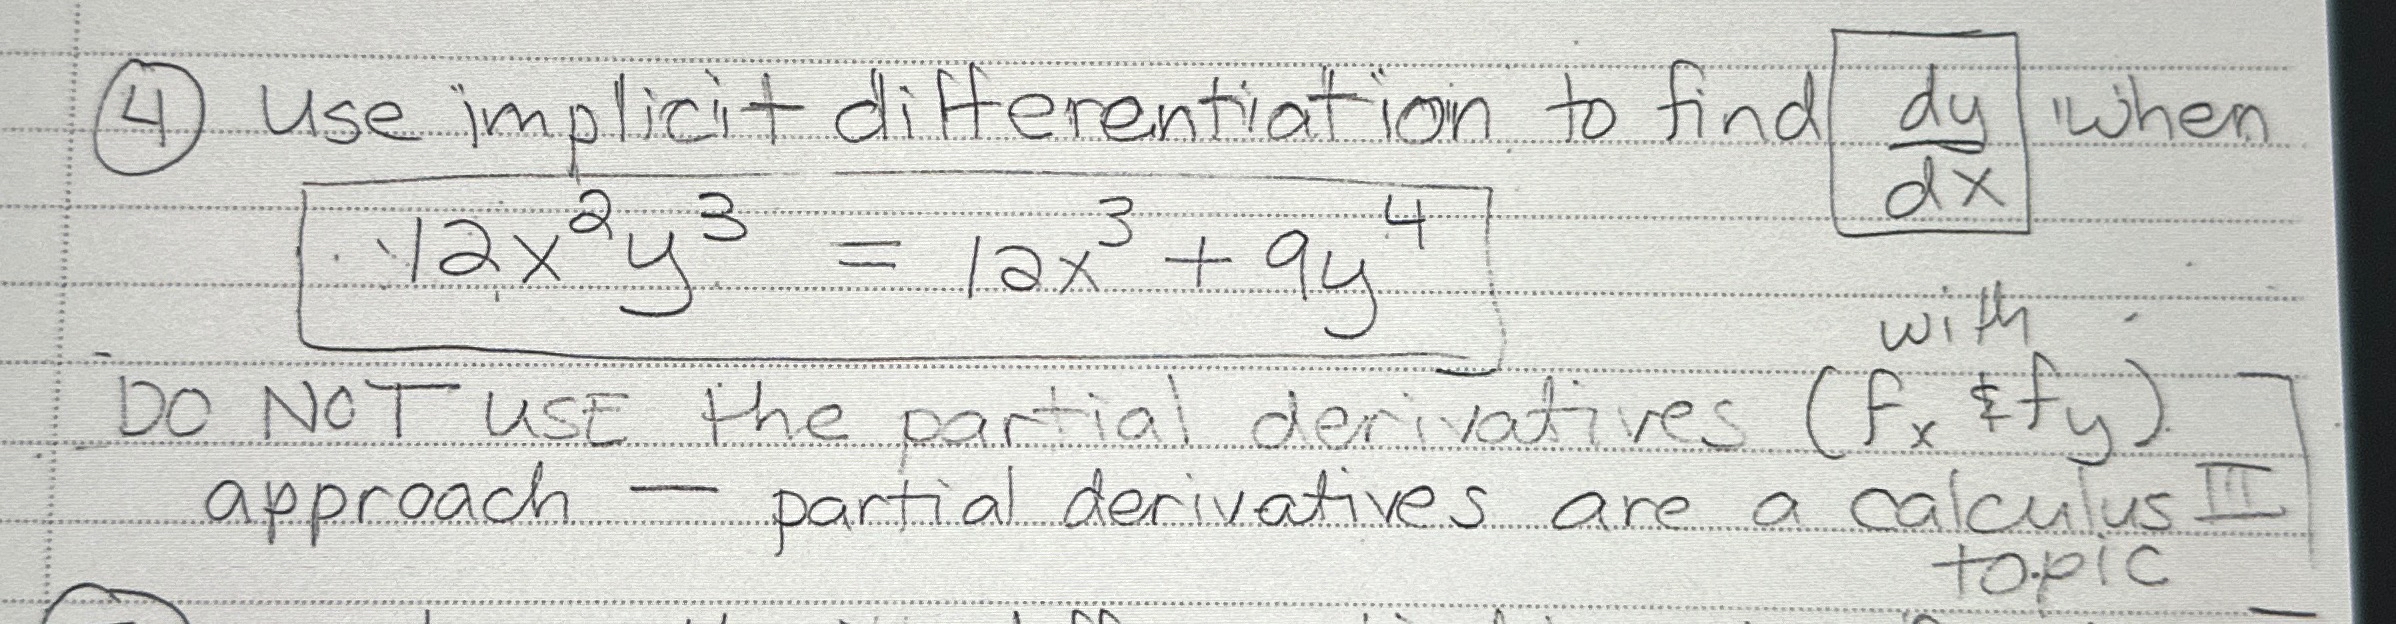 ④ Use implicit differentiation to find dy/dx when
12x²y³ = 12x³ + 9y⁴
with
DO NOT USE the partial derivatives (fₓ & f_y)
approach — partial derivatives are a calculus III
topic